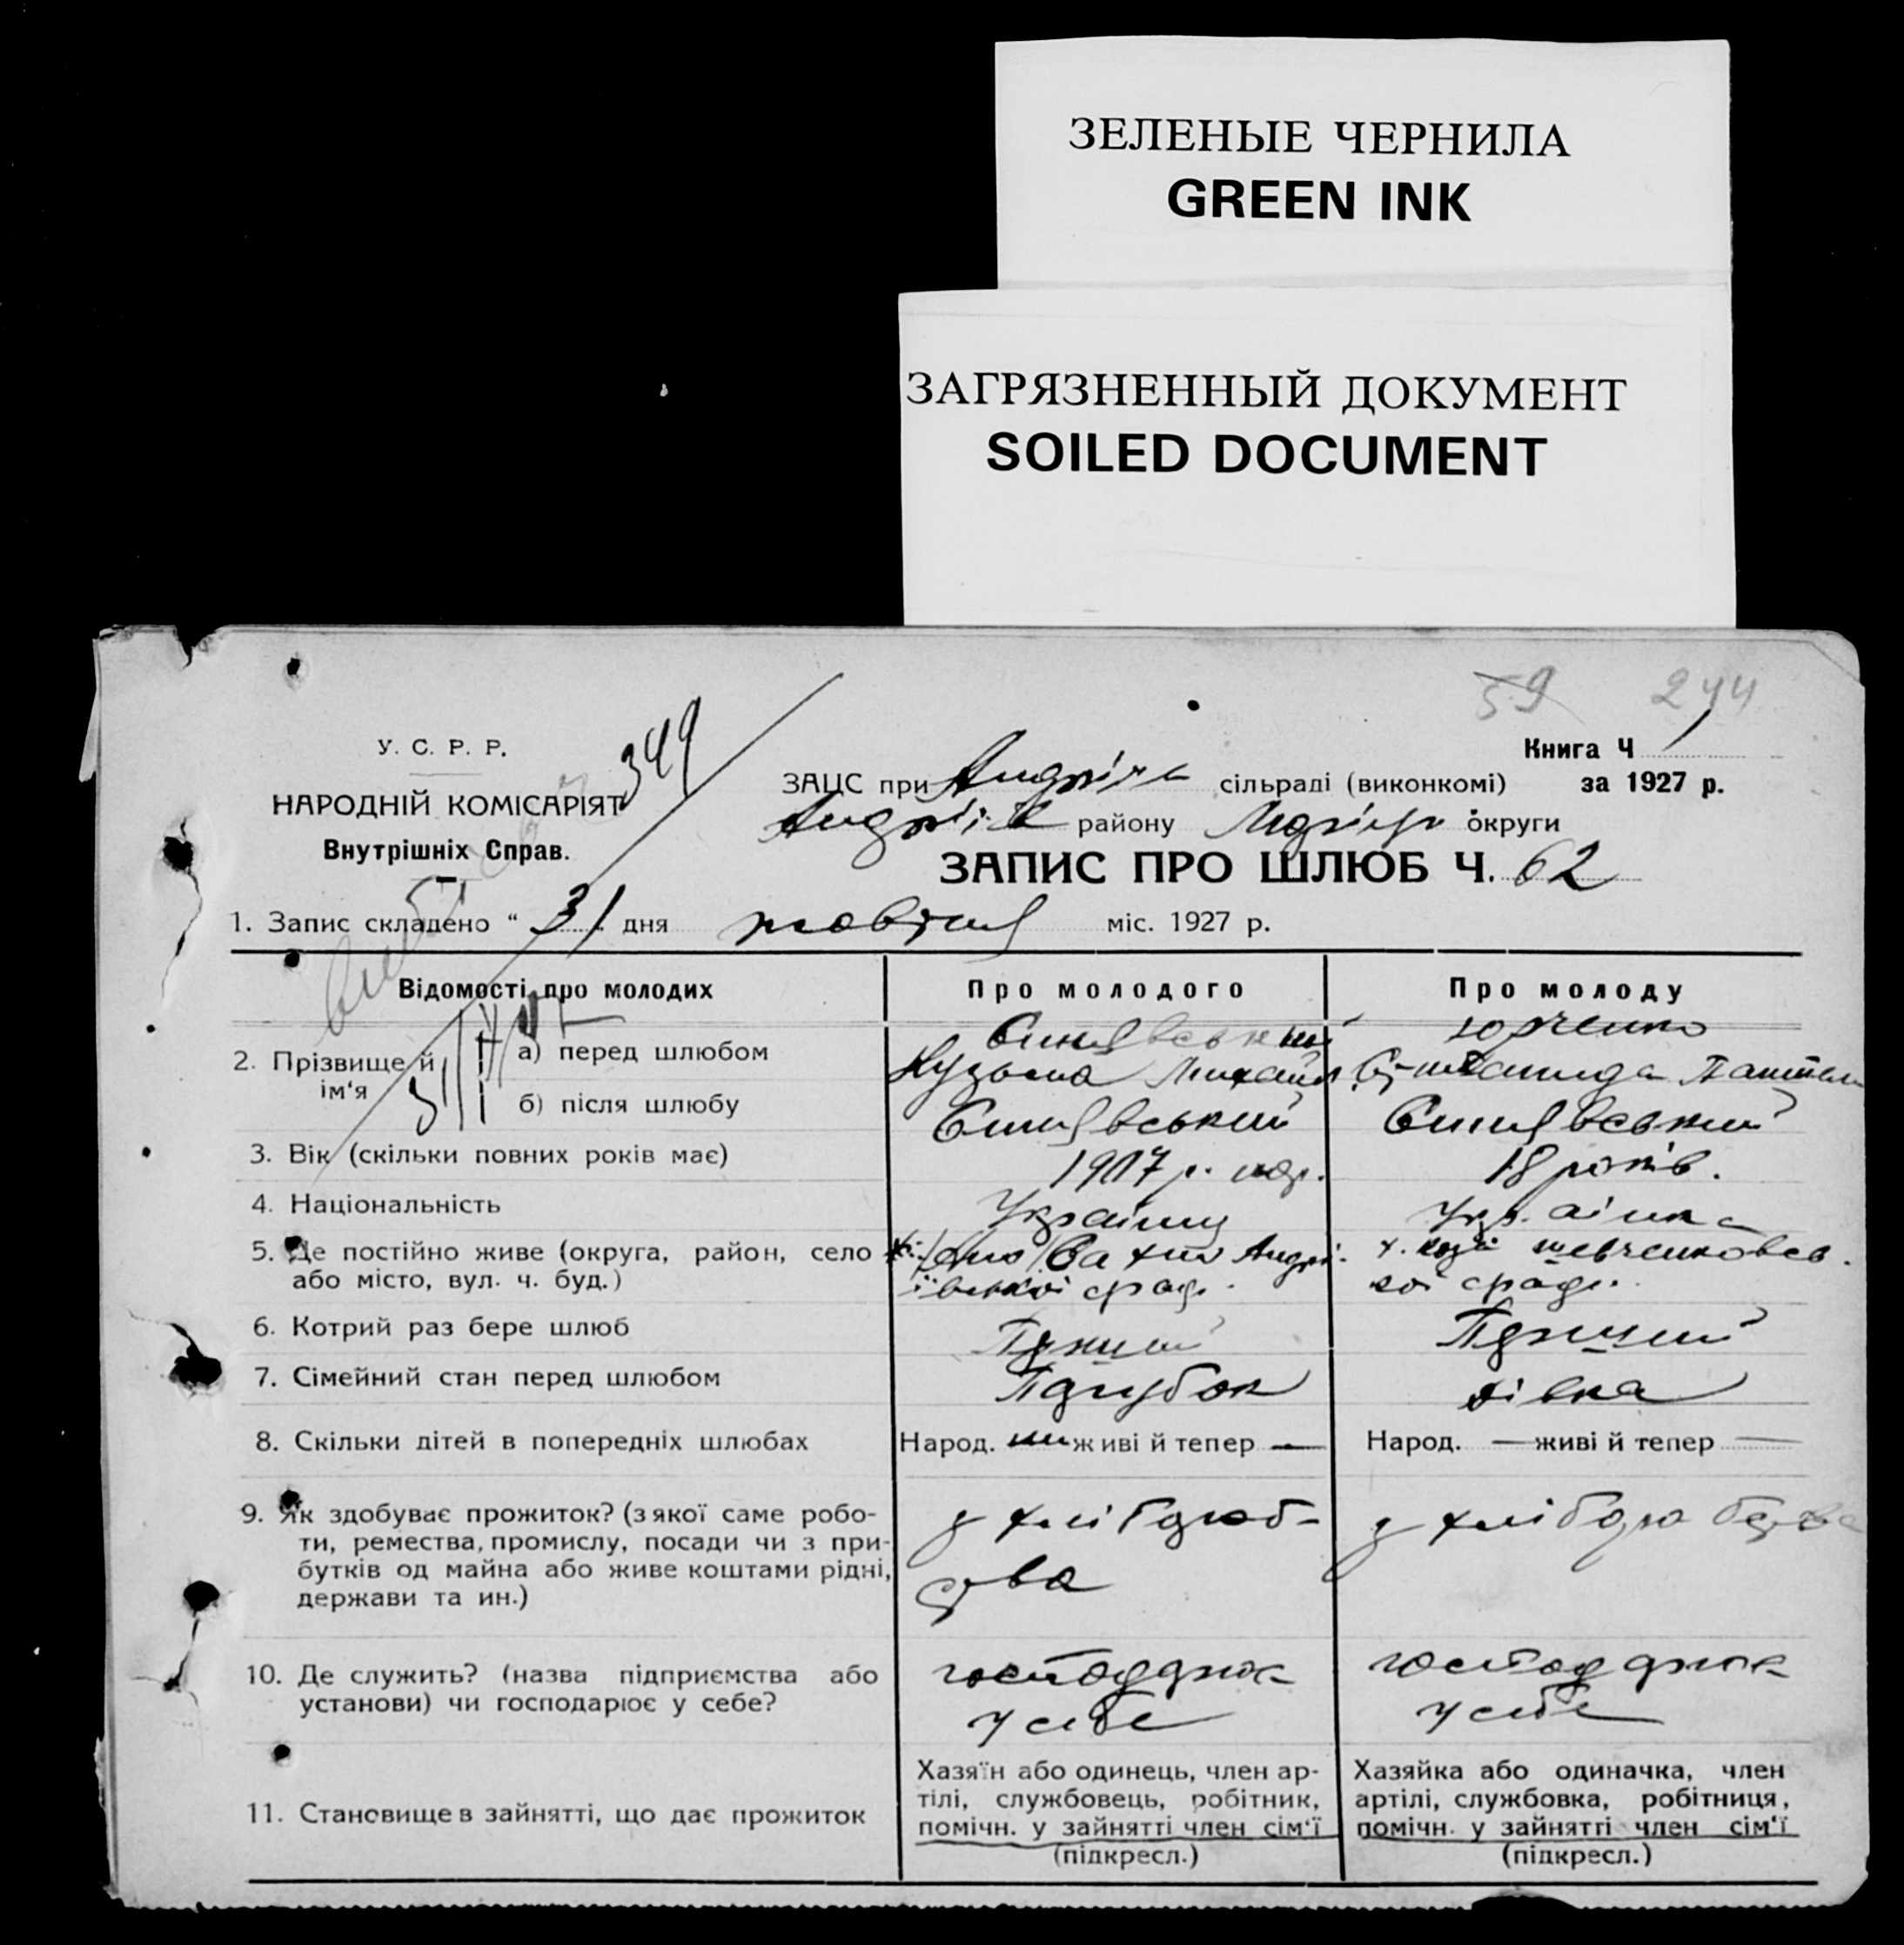 ЗЕЛЕНЫЕ ЧЕРНИЛА
GREEN INK
ЗАГРЯЗНЕННЫЙ ДОКУМЕНТ
SOILED DOCUMENT
59 244
У. С. Р. Р.
349
Книга Ч 1
НАРОДНІЙ КОМІСАРІЯТ
ЗАЦС при сільраді (виконкомі) за 1927 р.
Внутрішніх Справ.
району округи
ЗАПИС ПРО ШЛЮБ Ч. 62
1. Запис складено “ 31 дня жовтня міс. 1927 р.
Відомості про молодих
Про молодого
Про молоду
2. Прізвище й ім‘я
а) перед шлюбом
Синявський
Кузьма Михайл
Юрченко
Пантел
б) після шлюбу
Синявський
Синявський
3. Вік (скільки повних років має)
18 років.
4. Національність
Українц
Українка
5. Де постійно живе (округа, район, село
або місто, вул. ч. буд.)
Андрі-
ївської срад.
шевченковсь
кої срад.
6. Котрий раз бере шлюб
Перший
Перший
7. Сімейний стан перед шлюбом
Парубок
дівка
8. Скільки дітей в попередніх шлюбах
Народ. живі й тепер —
Народ. — живі й тепер —
9. Як здобуває прожиток? (з якої саме робо-
ти, ремества, промислу, посади чи з при-
бутків од майна або живе коштами рідні,
держави та ин.)
з хлібороб-
ства
з хліборобства
10. Де служить? (назва підприємства або
установи) чи господарює у себе?
господарює
у себе
господарює
у себе
11. Становище в зайнятті, що дає прожиток
Хазяїн або одинець, член ар-
тілі, службовець, робітник,
помічн. у зайнятті член сім‘ї
(підкресл.)
Хазяйка або одиначка, член
артілі, службовка, робітниця,
помічн. у зайнятті член сім‘ї
(підкресл.)